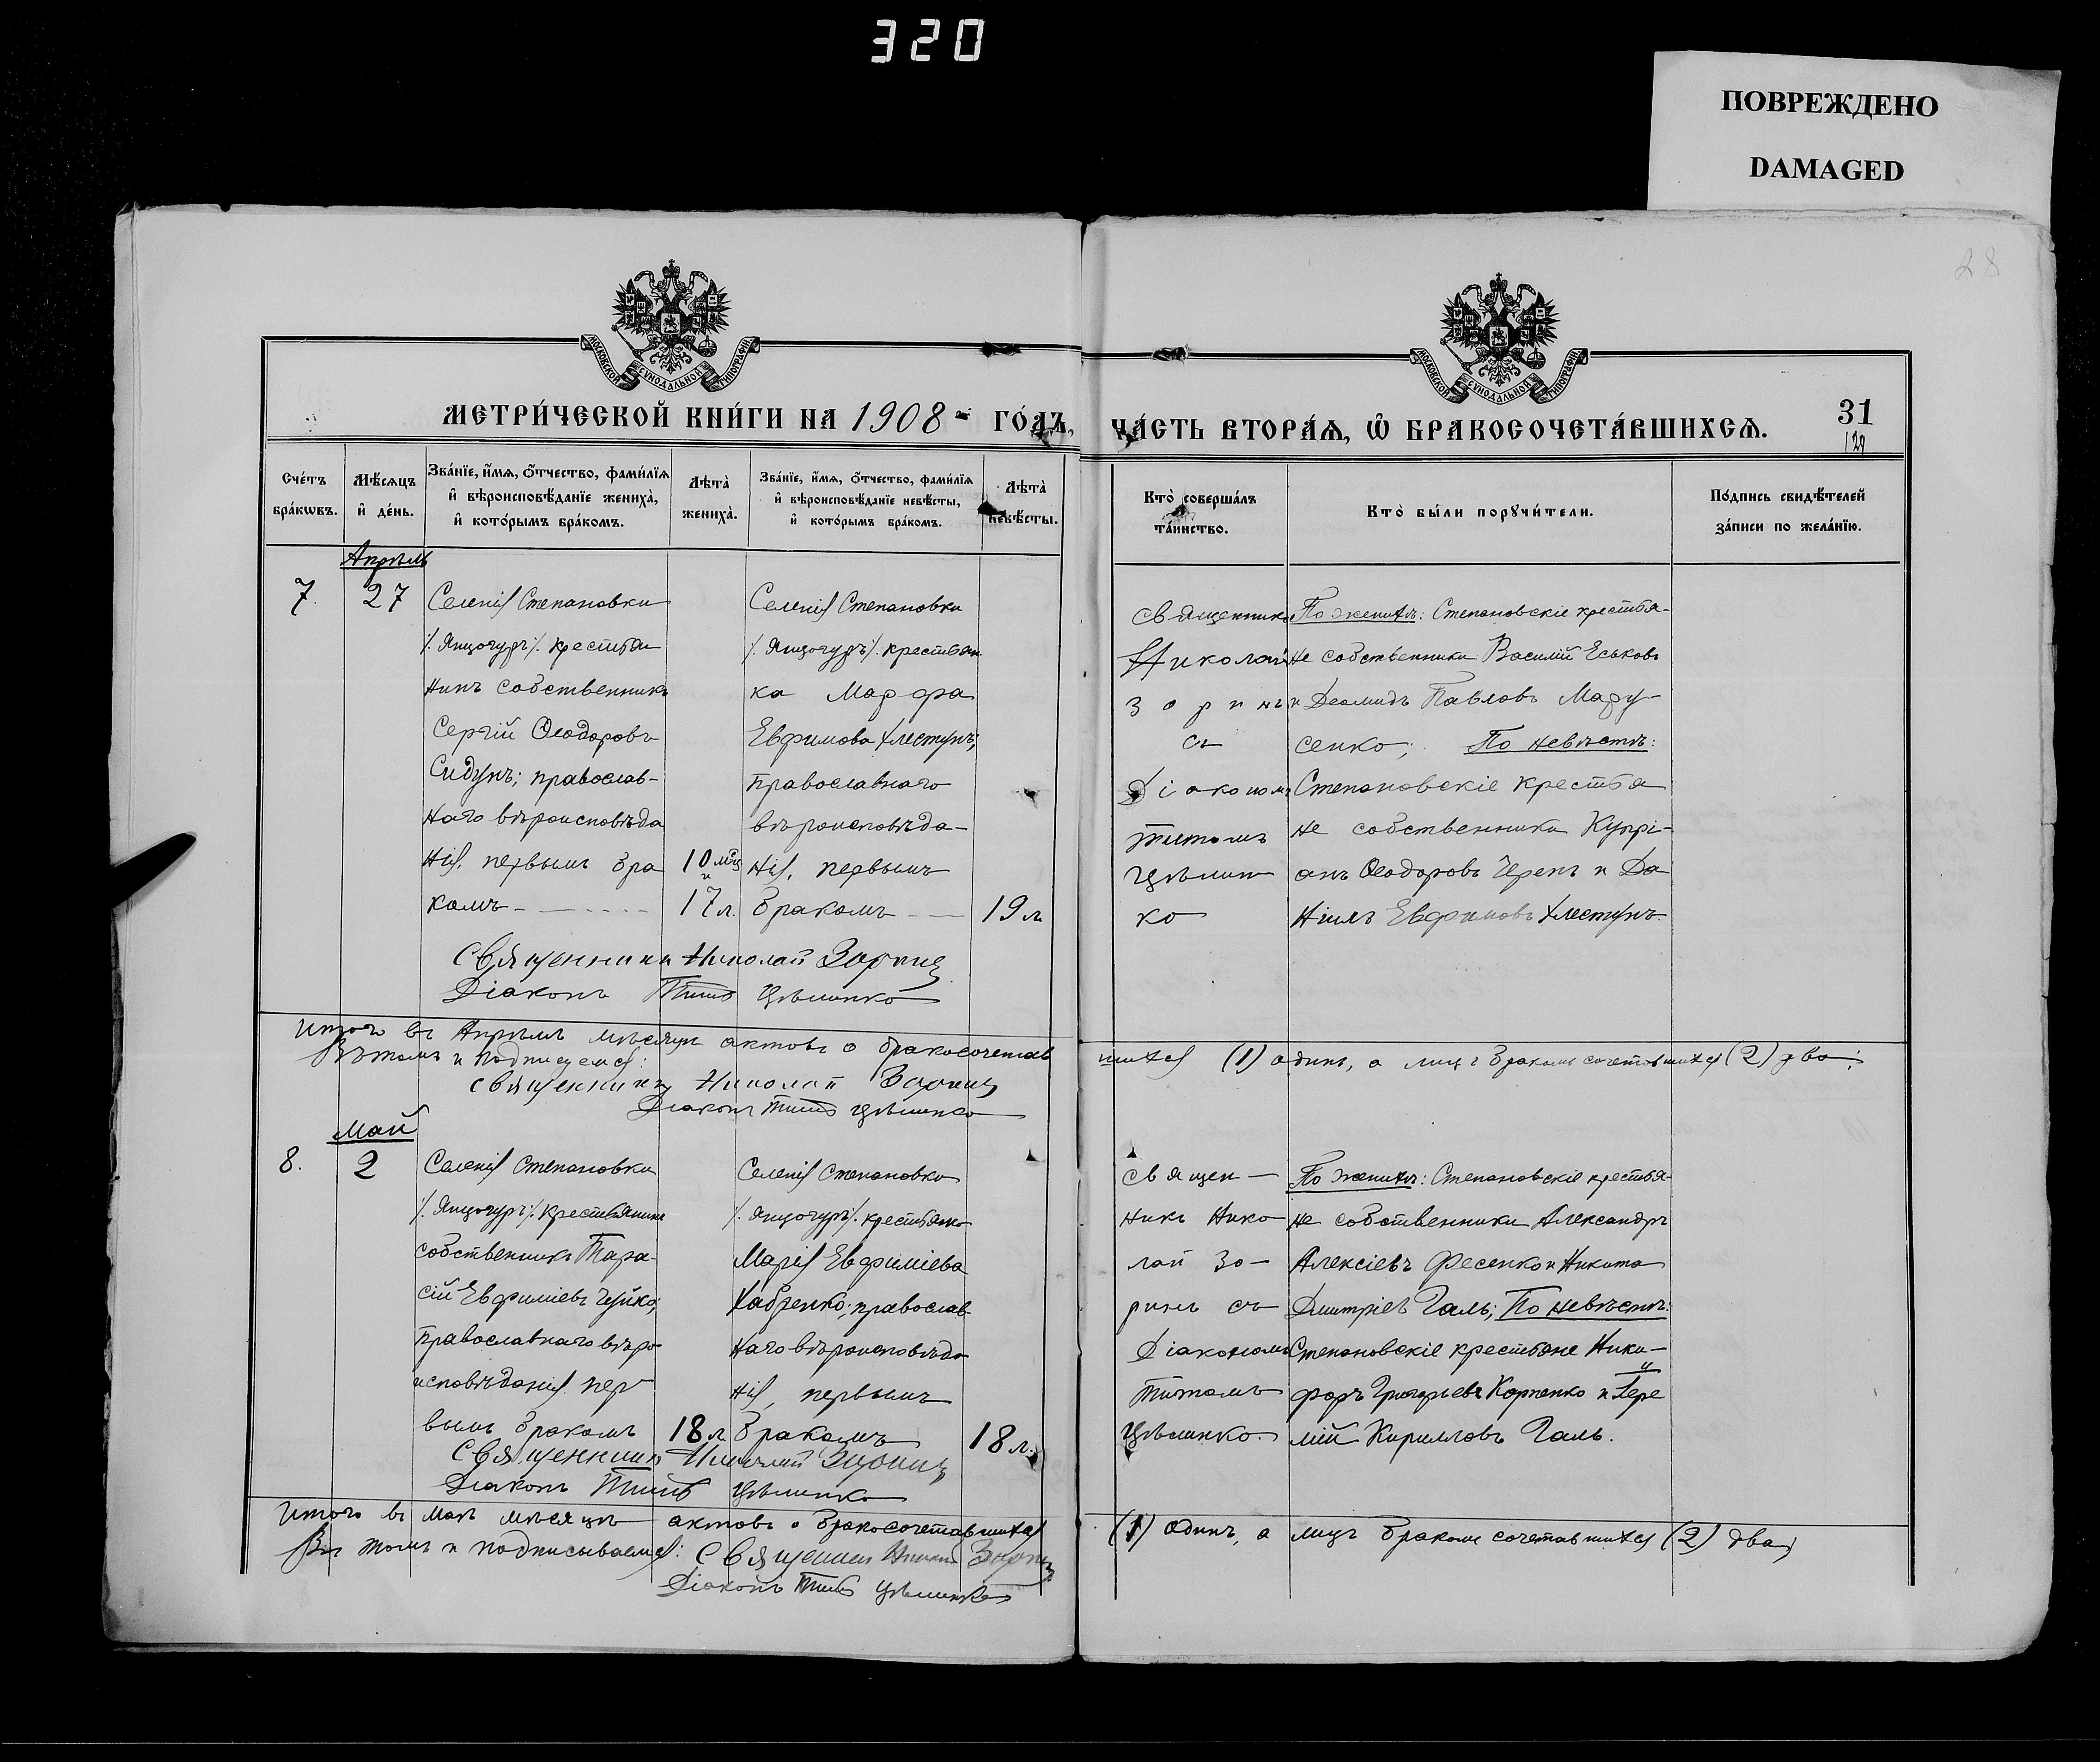 320
ПОВРЕЖДЕНО
DAMAGED
28
МОСКОВСКОЙ СѴНОДАЛЬНОЙ ТИПОГРАФІИ
МОСКОВСКОЙ СѴНОДАЛЬНОЙ ТИПОГРАФІИ
МЕТРИ́ЧЕСКОЙ КНИ́ГИ НА 1908 ГО́ДЪ,
ЧА́СТЬ ВТОРА́Ѧ, Ѡ҆ БРАКОСОЧЕТА́ВШИХСѦ.
31
129
Сче́тъ бра́кѡвъ.
Мѣ́сѧцъ и҆ де́нь.
Зва́нїе, и҆́мѧ, ѻ҆́тчество, фами́лїѧ
и҆ вѣроисповѣ́данїе жениха̀,
и҆ кото́рымъ бра́комъ.
Лѣта̀ жениха̀.
Зва́нїе, и҆́мѧ, ѻ҆́тчество, фами́лїѧ
и҆ вѣроисповѣ́данїе невѣ́сты,
и҆ кото́рымъ бра́комъ.
Лѣта̀ невѣ́сты.
Кто̀ соверша́лъ та́инство.
Кто̀ бы́ли порꙋчи́тели.
По́дпись свидѣ́телей
за́писи по жела́нїю.
Апрѣль
7. 27
Селенія Степановки
/. Янцогуръ /. крестья
нинъ собственникъ
Сергій Ѳеодоровъ
Сидунъ; православ-
наго вѣроисповѣда
нія, первымъ бра
комъ
10 мѣц
и
17 л.
Селенія Степановки
/. Янцогуръ /. крестьян
ка Марфа
Евфимова Хлестунъ;
православнаго
вѣроисповѣда-
нія, первымъ
бракомъ
19 л
Священникъ
Николай
Зоринъ
съ
Діакономъ
Титомъ
Цѣлин
ко
По женихѣ: Степановскіе крестья-
не собственники Василій Еськовъ
и Деомидъ Павловъ Мару-
сенко; По невѣстѣ:
Степановскіе крестья
не собственники Купрі-
анъ Ѳеодоровъ Черепъ и Да
ніилъ Евфимовъ Хлестунъ.
Священникъ Николай Зоринъ
Діаконъ Титъ Цѣлинко
Итого въ Апрѣлѣ мѣсяцѣ актовъ о бракосочетав
шихся (1) одинъ, а лицъ бракомъ сочетавшихся (2) два;
Въ томъ и подписуемся:
Священникъ Николай Зоринъ
Діаконъ Титъ Цѣлинко
Май
8. 2
Селенія Степановки
/. Янцогуръ /. крестьянинъ
собственникъ Тара-
сій Евфиміевъ Чуйко;
православнаго вѣро
исповѣданія пер
вымъ бракомъ
18 л
Селенія Степановки
/. Янцогуръ /. крестьянка
Марія Евфиміева
Хабренко; православ
наго вѣроисповѣда
нія, первымъ
бракомъ
18 л.
Священ-
никъ Нико
лай Зо-
ринъ съ
Діакономъ
Титомъ
Цѣлинко.
По женихѣ: Степановскіе крестья-
не собственники Александръ
Алексіевъ Фесенко и Никита
Дмитріевъ Галь; По невѣстѣ:
Степановскіе крестьяне Ники-
форъ Григорьевъ Карпенко и Іере
мій Кирилловъ Галь.
Священникъ Николай Зоринъ
Діаконъ Титъ Цѣлинко
Итого въ маѣ мѣсяцѣ актовъ о бракосочетавшихся
(1) одинъ, а лицъ бракомъ сочетавшихся (2) два;
Въ томъ и подписываемся: Священникъ Николай Зоринъ
Діаконъ Титъ Цѣлинко